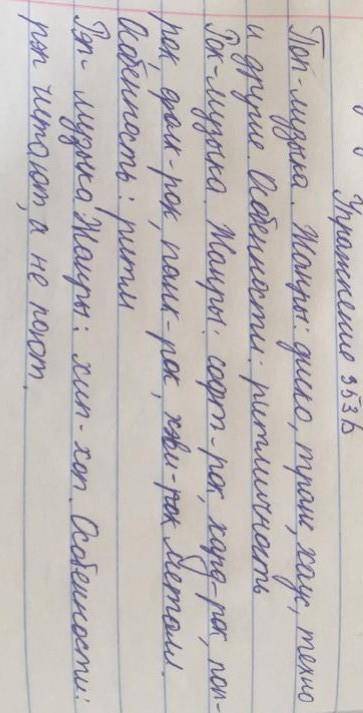 Упражнение 553 б
Поп-музыка. Жанры: диско, транс, хаус, техно
и другие. Особенности: ритмичность
Рок-музыка. Жанры: софт-рок, хард-рок, поп-
рок, фолк-рок, панк-рок, хэви-рок метали.
Особенность: ритм
Рэп-музыка. Жанры: хип-хоп. Особенности:
рэп читают, а не поют.